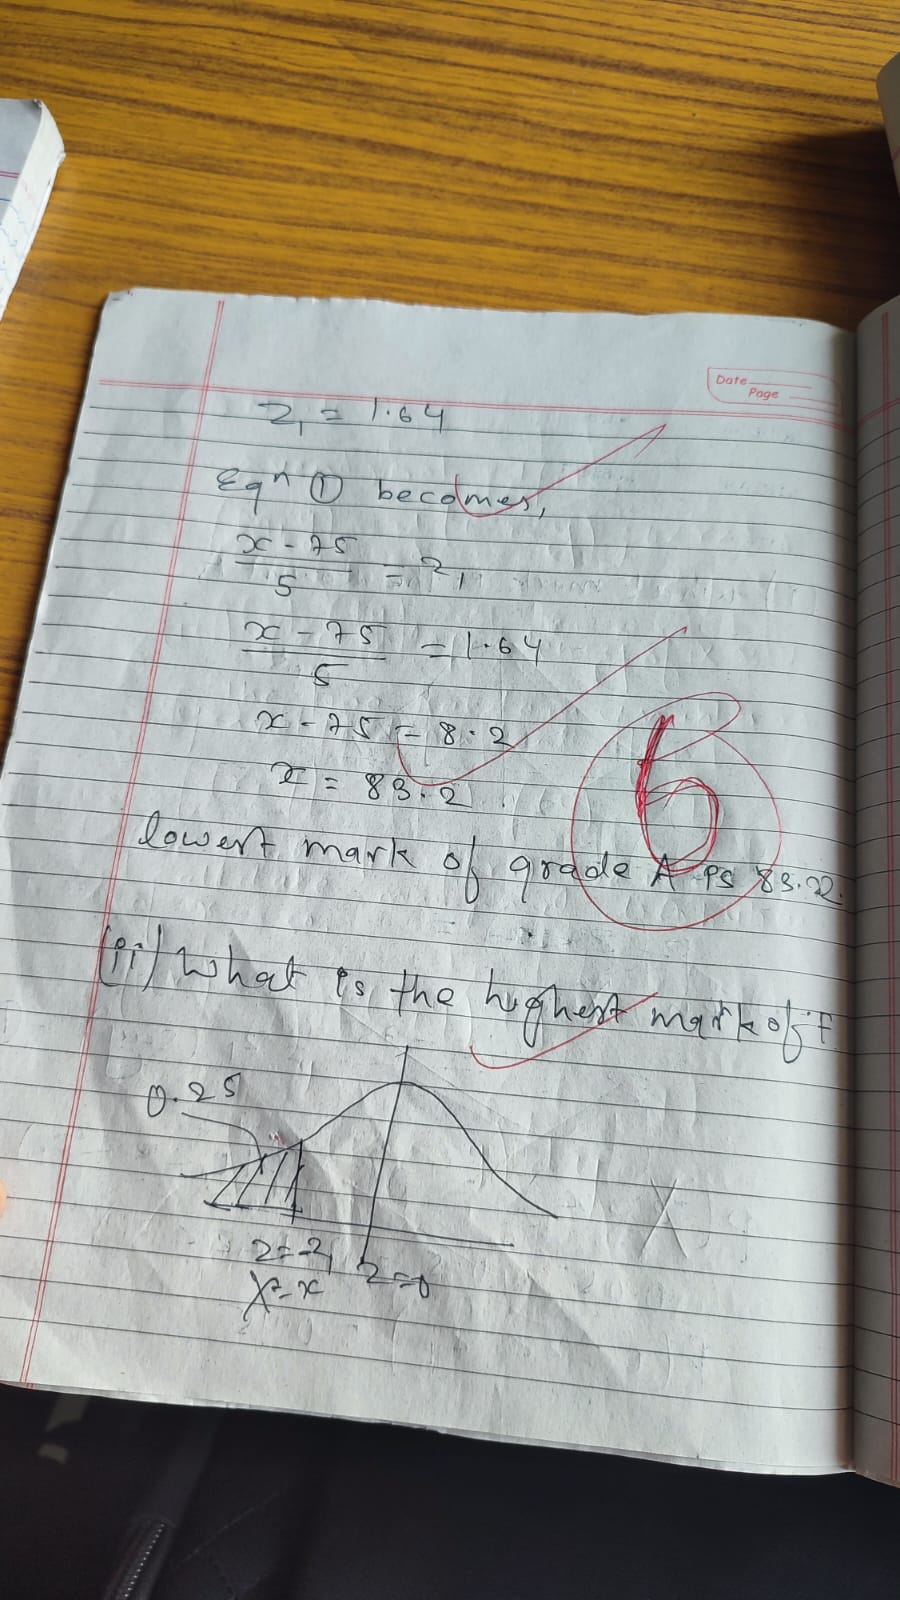 Date
Page
z₁ = 1.64
Eqⁿ ① becomes,
x - 75 / 5 = z₁
x - 75 / 5 = 1.64
x - 75 = 8.2
x = 83.2
6
lowest mark of grade A is 83.2.
(ii) What is the highest mark of F
0.25
z=-z₁
z=0
X=x